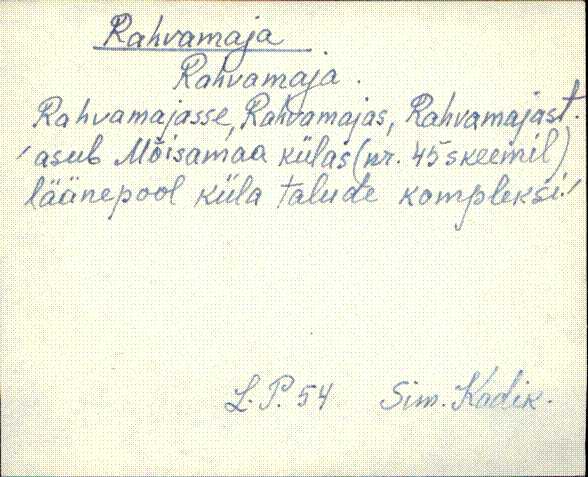 Rahvamaja
Rahvamaja.
Rahvamajasse, Rahvamajas, Rahvamajast.
/asub Mõisamaa külas (nr. 45 skeemil)
läänepool küla talude kompleksi./
L. P. 54 Sim. Kadik.